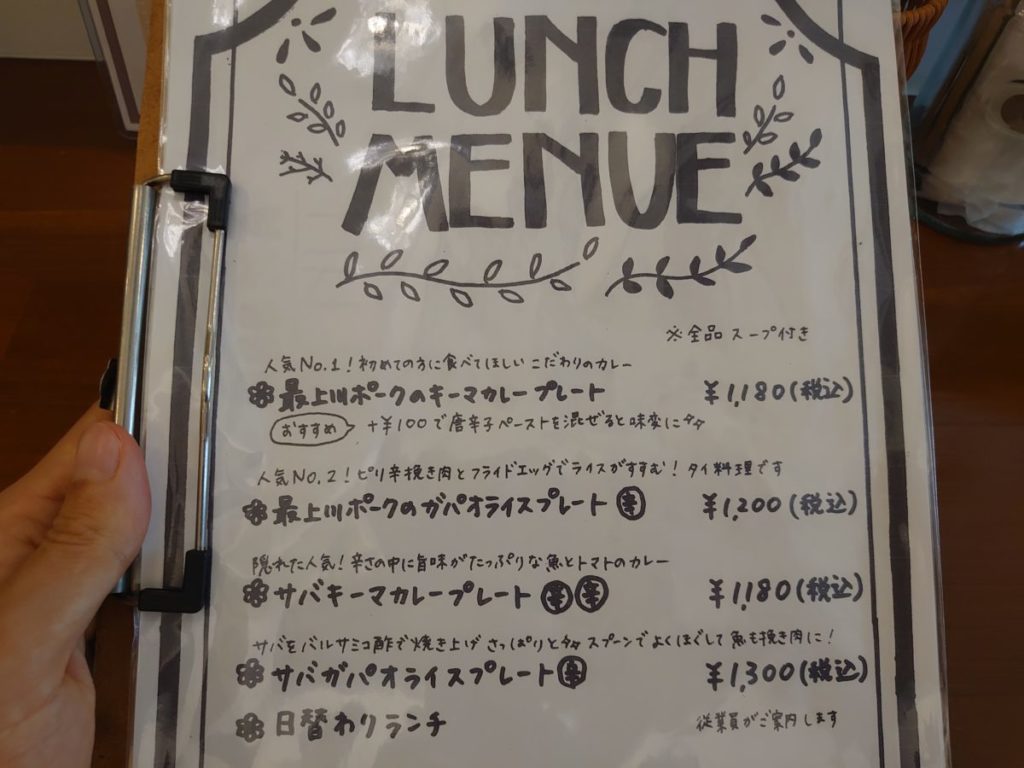 LUNCH
MENUE
※全品 スープ付き
人気No.1！初めての方に食べてほしい こだわりのカレー
最上川ポークのキーマカレープレート ¥1,180(税込)
おすすめ +¥100で唐辛子ペーストを混ぜると味変に♪♪
人気No.2！ピリ辛挽き肉とフライドエッグでライスがすすむ！タイ料理です
最上川ポークのガパオライスプレート 辛 ¥1,200(税込)
隠れた人気！辛さの中に旨味がたっぷりな魚とトマトのカレー
サバキーマカレープレート 辛 辛 ¥1,180(税込)
サバをバルサミコ酢で焼き上げ さっぱりと♪♪ スプーンでよくほぐして 魚も挽き肉に！
サバガパオライスプレート 辛 ¥1,300(税込)
日替わりランチ 従業員がご案内します